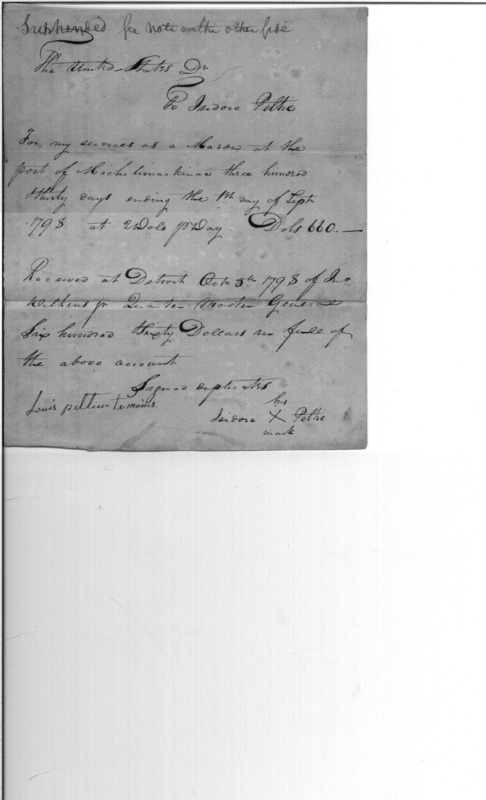 Suspended see note on the other side
The United States Dr
To Isidore Peltre
For my services as a Mason at the
post of Michilimackinac three hundred
& thirty days ending the 1st day of Sept
1798 at 2 Dols pr Day. Dols 660.—
Received at Detroit Octr 3th 1798 of Jno.
Wilkins jr Quarter Master General
Six hundred thirty Dollars in full of
the above account
Signed duplicates
Louis temoins
his
Isidore X Peltre
mark